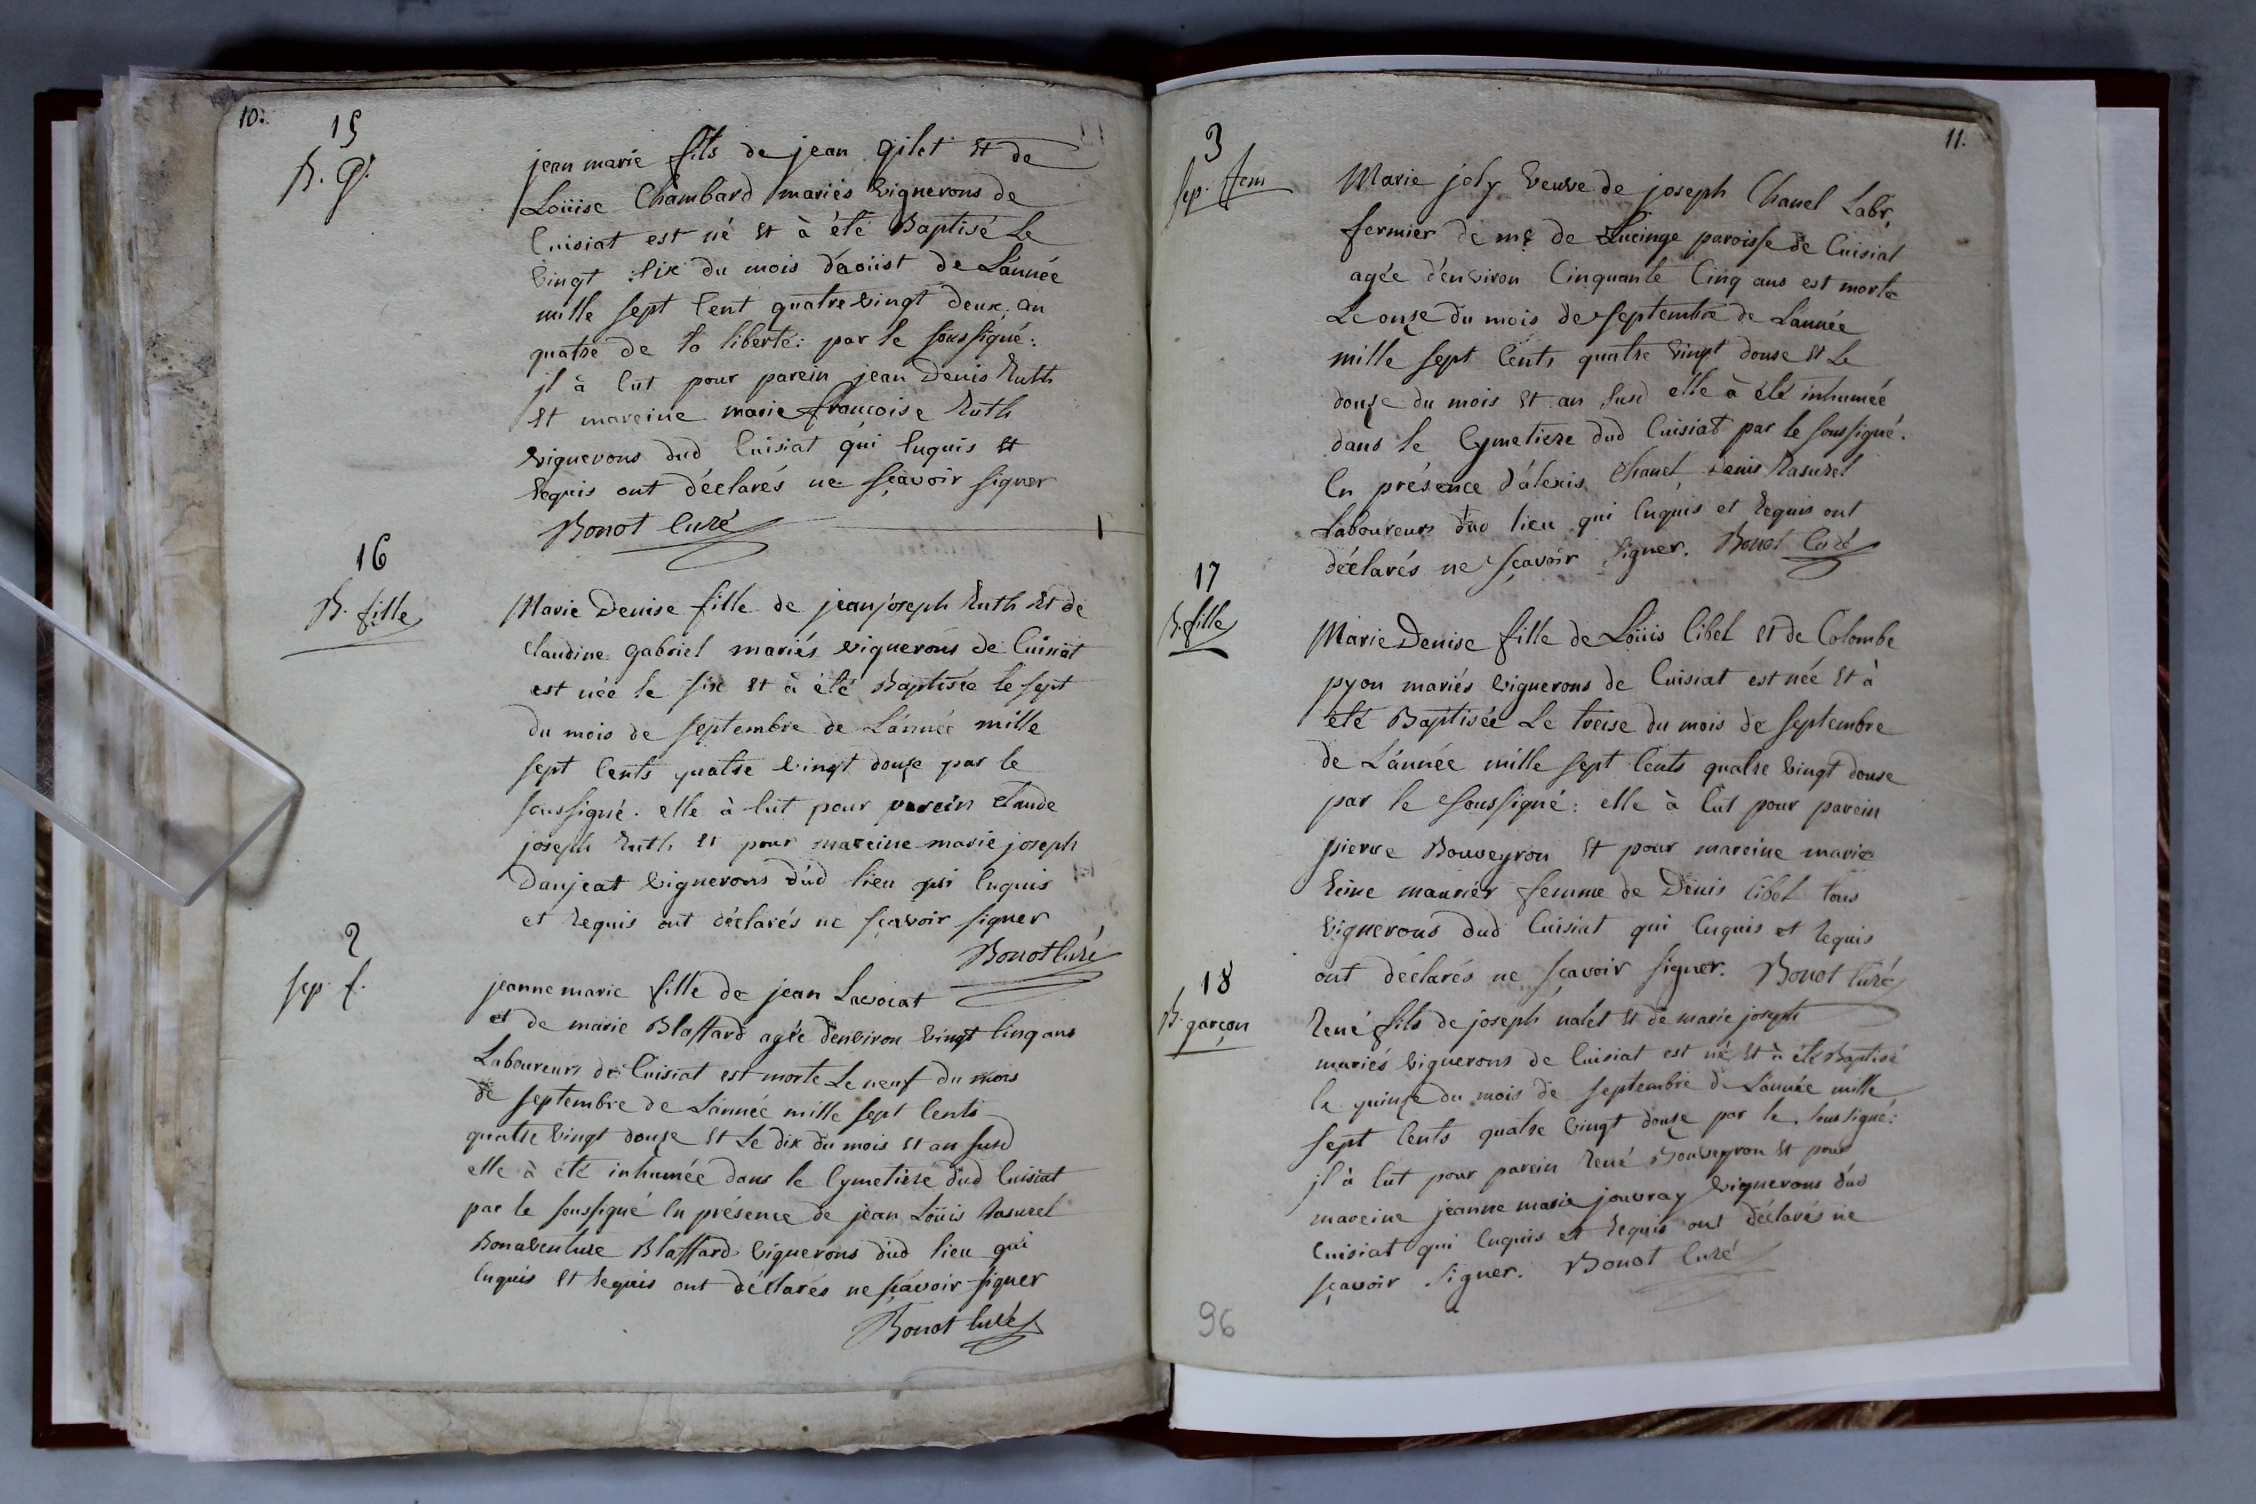 10.
15
B. G.
jean marie fils de jean gilet et de
Loüise Chambard mariés vignerons de
Cuisiat est né et à été Baptisé Le
vingt six du mois d'aoüst de L'année
mille sept Cent quatre vingt deux. an
quatre de la liberté: par le soussigné:
jl à Eut pour parein jean Denis Ruth
Et mareine marie françoise Ruth
vignerons dud Cuisiat qui Enquis Et
Requis ont déclarés ne sçavoir signer
Bonot Curé
16
B. fille
Marie Denise fille de jean joseph Ruth Et de
Claudine gabriel mariés vignerons de Cuisiat
est née le six et à été Baptisée le sept
du mois de septembre de L'année mille
sept Cents quatre vingt douze par le
soussigné. elle à Eut pour parein Claude
joseph Ruth et pour mareine marie joseph
Danjeat vignerons dud lieu qui Enquis
et Requis ont déclarés ne sçavoir signer
Bonot Curé
2
sep. f.
jeanne marie fille de jean Lavocat
et de marie Blaffard agée d'environ vingt Cinq ans
Laboureurs de Cuisiat est morte Le neuf du mois
de septembre de L'année mille sept Cents
quatre vingt douze Et Le dix du mois et an susd
elle à été inhumée dans le Cymetiere dud Cuisiat
par le soussigné En présence de jean Loüis Rasurel
Bonaventure Blaffard vignerons dud lieu qui
Enquis Et Requis ont déclarés ne sçavoir signer
Bonot Curé
11.
3
sep. fem
Marie joly veuve de joseph Chanel Labr,
fermier de mr de Lucinge paroisse de Cuisiat
agée d'environ Cinquante Cinq ans est morte
Le onze du mois de septembre de L'année
mille sept Cents quatre vingt douse et Le
douze du mois et an susd elle à été inhumée
dans le Cymetiere dud Cuisiat par le soussigné.
En présence d'alexis Chanel, Denis Rasurel
Laboureurs dud lieu qui Enquis et Requis ont
déclarés ne sçavoir signer. Bonot Curé
17
B. fille
Marie Denise fille de Loüis Cibel et de Colombe
pyon mariés vignerons de Cuisiat est née Et à
été Baptisée Le treise du mois de septembre
de L'année mille sept Cents quatre vingt douse
par le soussigné: elle à Eut pour parein
pierre Bouveyron Et pour mareine marie
Reine maurier femme de Denis Cibel tous
vignerons dud Cuisiat qui Enquis et Requis
ont déclarés ne sçavoir signer. Bonot Curé
18
B. garçon
René fils de joseph nalet et de marie joseph
mariés vignerons de Cuisiat est né Et à été Baptisé
le quinze du mois de septembre de L'année mille
sept Cents quatre vingt douze par le soussigné:
jl à Eut pour parein René Bouveyron Et pour
mareine jeanne marie jouvray vignerons dud
Cuisiat qui Enquis et Requis ont déclarés ne
sçavoir signer. Bonot Curé
96